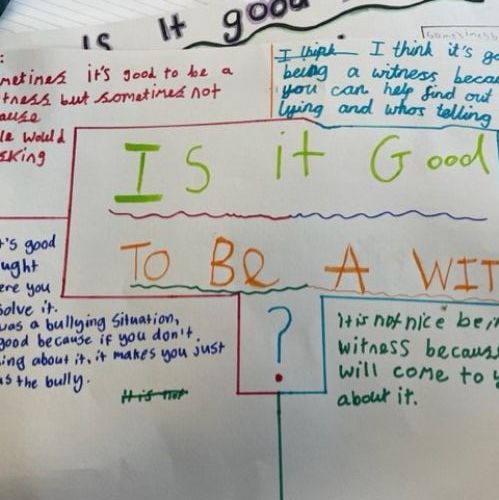 IS It good
metimes it's good to be a
tness but sometimes not
ause
le would
sking
I think I think it's go
being a witness becau
you can help find out
lying and whos telling
Is it Good
TO BE A WIT
?
t's good
ught
ere you
solve it.
was a bullying situation,
good because if you don't
ing about it, it makes you just
as the bully.
It is not
It is not nice bein
witness becaus
will come to y
about it.